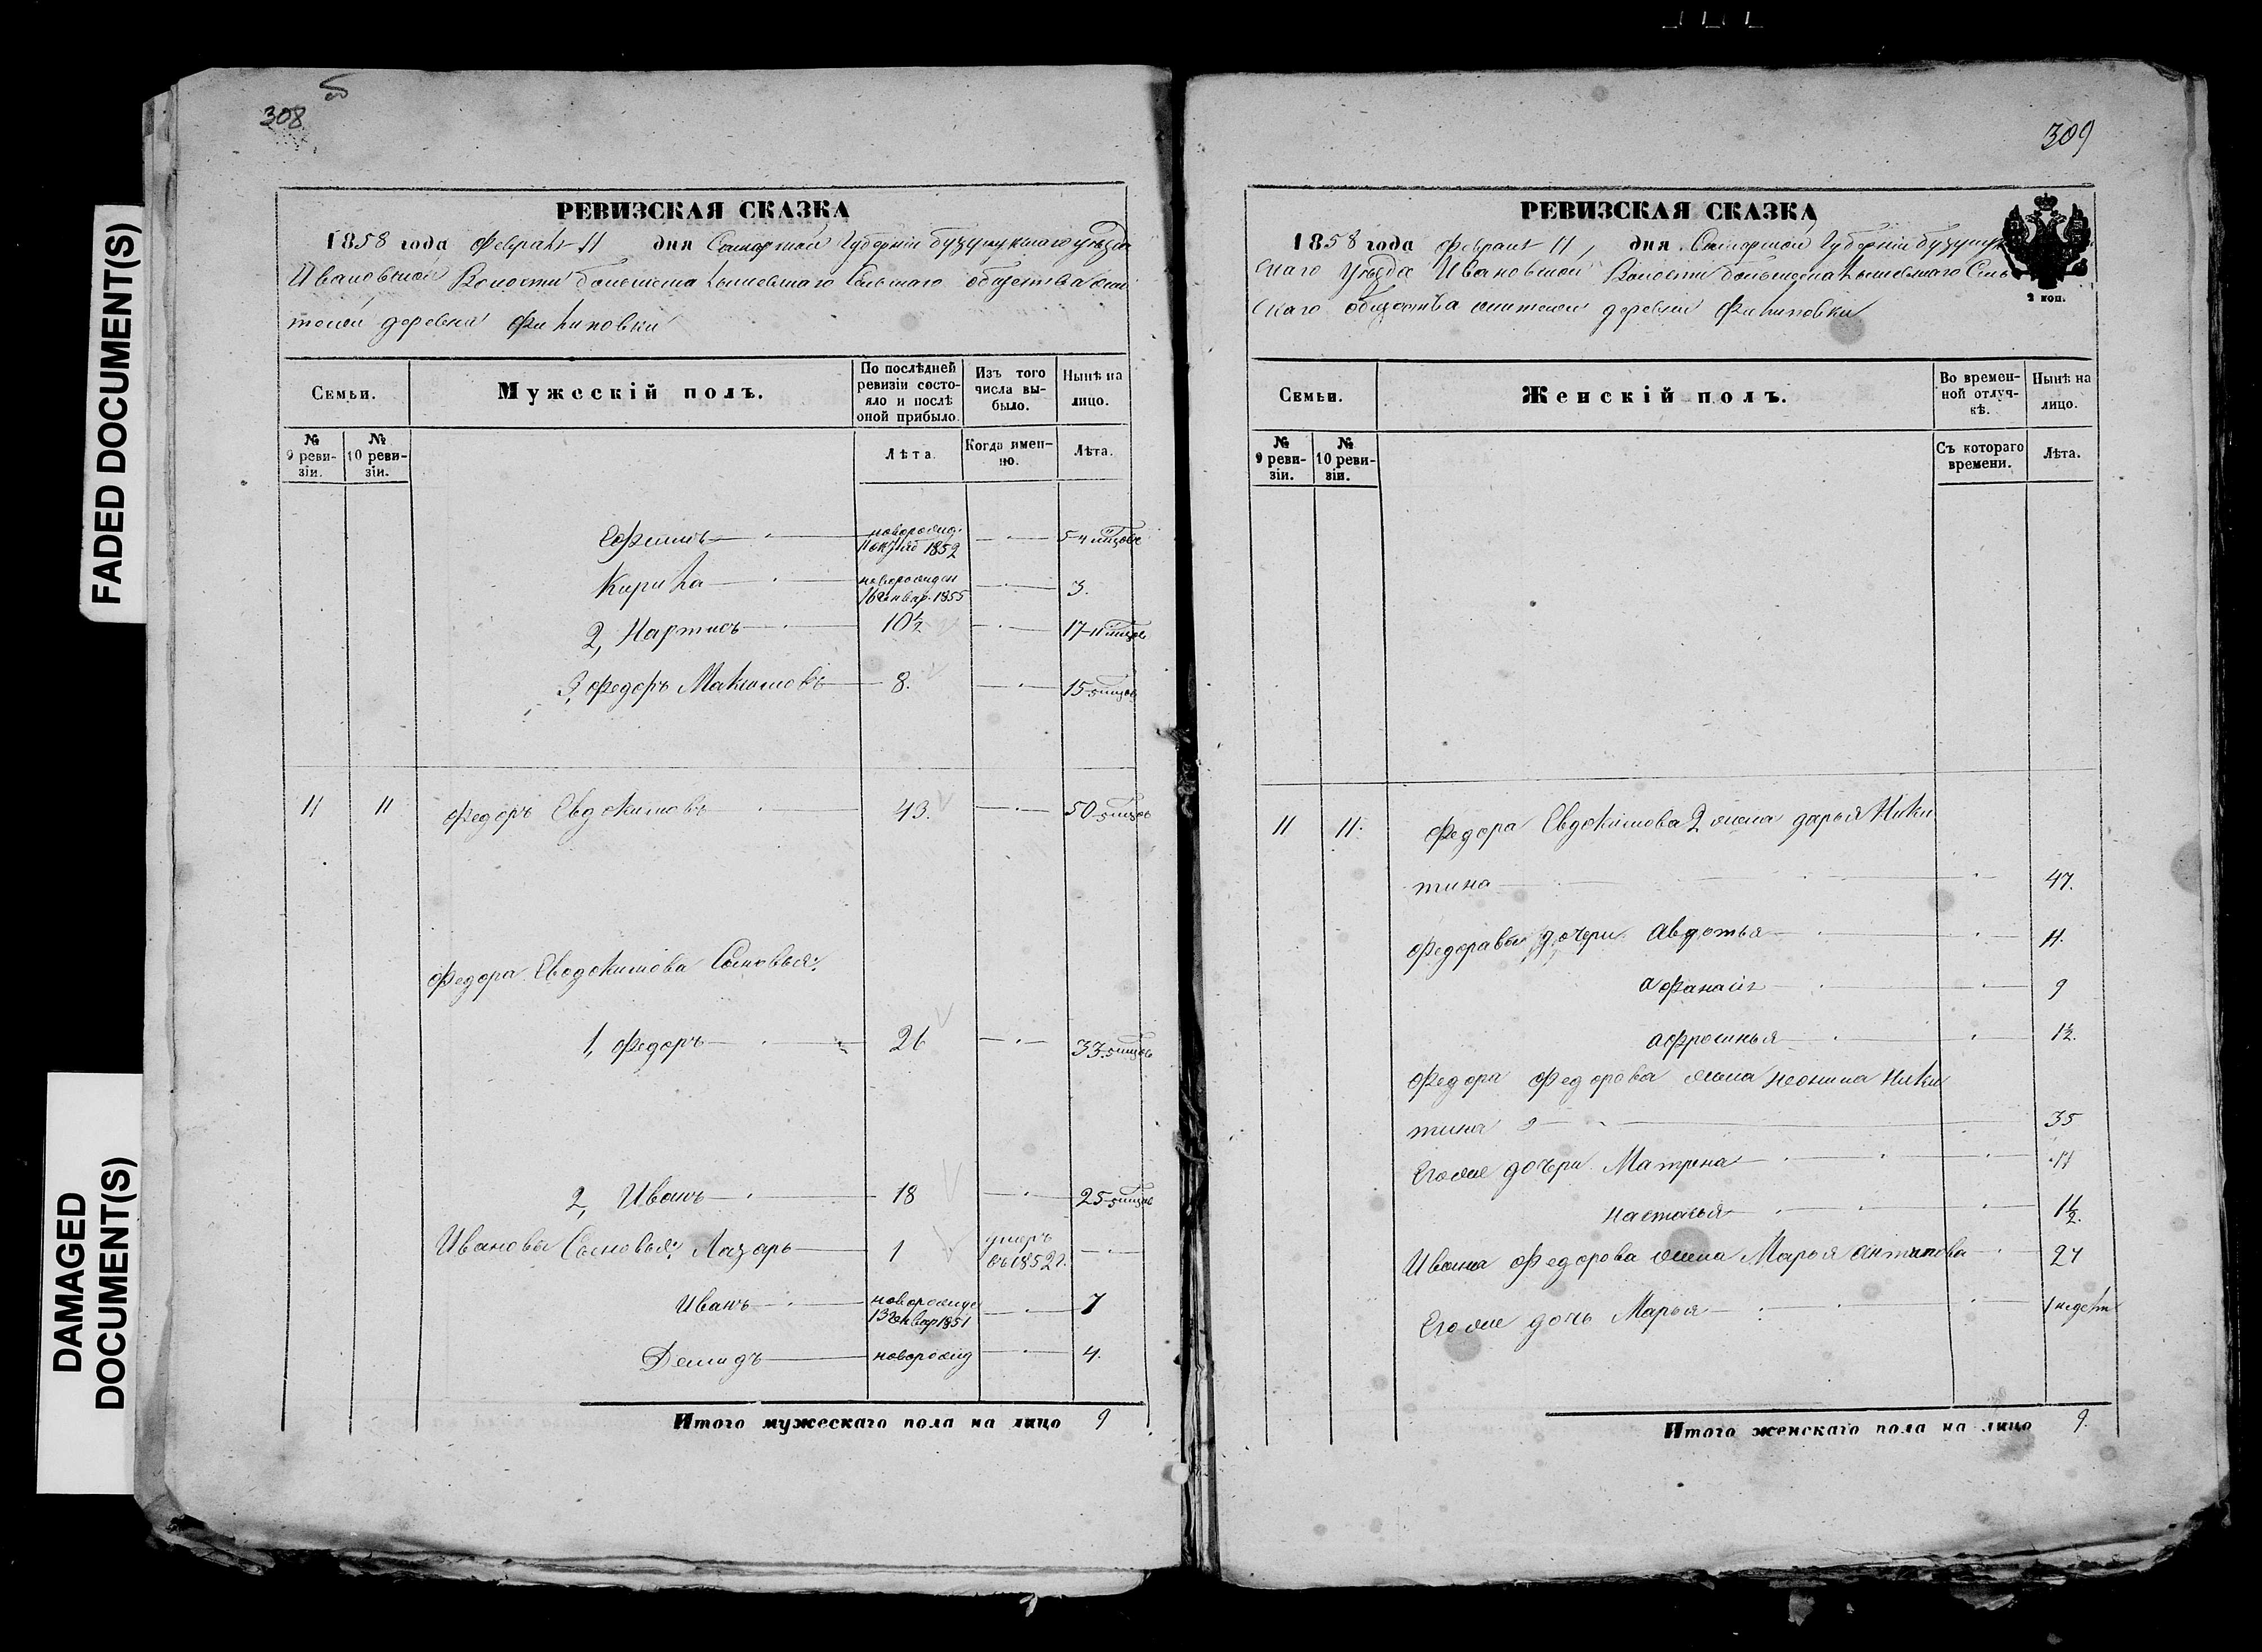 FADED DOCUMENT(S)
DAMAGED
DOCUMENT(S)
308
РЕВИЗСКАЯ СКАЗКА
1858 года февраля 11 дня Самарской Губерніи бузулукскаго уезда
Ивановской Волости Сельскаго общества
деревни Филиповки
Семьи.
Мужескій полъ.
По послѣдней ревизіи состояло и послѣ оной прибыло.
Изъ того числа выбыло.
Нынѣ на лицо.
№ 9 ревизіи.
№ 10 ревизіи.
Лѣта.
Когда именно.
Лѣта.
Ефимъ новорожд. 1852 5
Кирила новорожден 16 Генвар. 1855 3.
2, 10½ 17
3, Федоръ Максимовъ 8. 15
11 11 Федоръ Евдокимовъ 43. 50
Федора Евдокимова Сыновья:
1, Федоръ 26 33
2, Иванъ 18 25
Ивановы Сыновья: Лазарь 1 умеръ въ 1852 г.
Иванъ 13 Генвар 1851 7
Демидъ новорожд 4.
Итого мужескаго пола на лицо 9
309
РЕВИЗСКАЯ СКАЗКА
1858 года февраля 11, дня Самарской Губерніи бузулук
скаго уезда Ивановской Волости Сель
скаго общества деревни Филиповки
2 коп.
Семьи.
Женскій полъ.
Во временной отлучкѣ.
Нынѣ на лицо.
№ 9 ревизіи.
№ 10 ревизіи.
Съ котораго времени.
Лѣта.
11 11. Федора Евдокимова 2 жена дарья Ники
тина 47.
Федоравы дочери Авдотья 11.
афанасія 9
афросинья 1½.
Федора Федорова жена Ники
тина 35
Егоже дочери Матрена 11
настасья 1½.
Ивана Федорова жена Марья Антипова 24
Егоже дочь Марья 1
Итого женскаго пола на лицо 9.